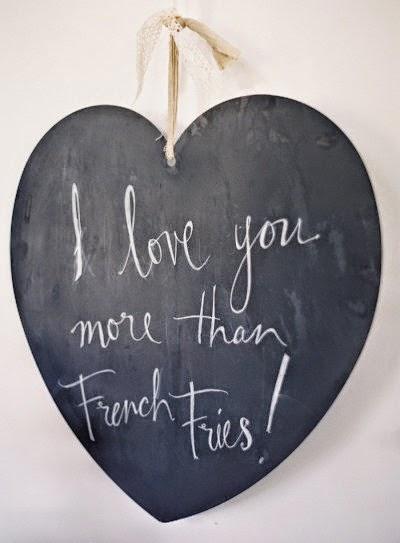 I love you
more than
French Fries!